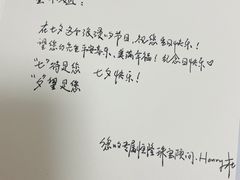 在七夕这个浪漫的节日，祝您节日快乐！
望您的先生平安喜乐、美满幸福！纪念日快乐♡
"七"待是您
"夕"望是您 七夕快乐！
您的专属恒隆珠宝顾问：Henry